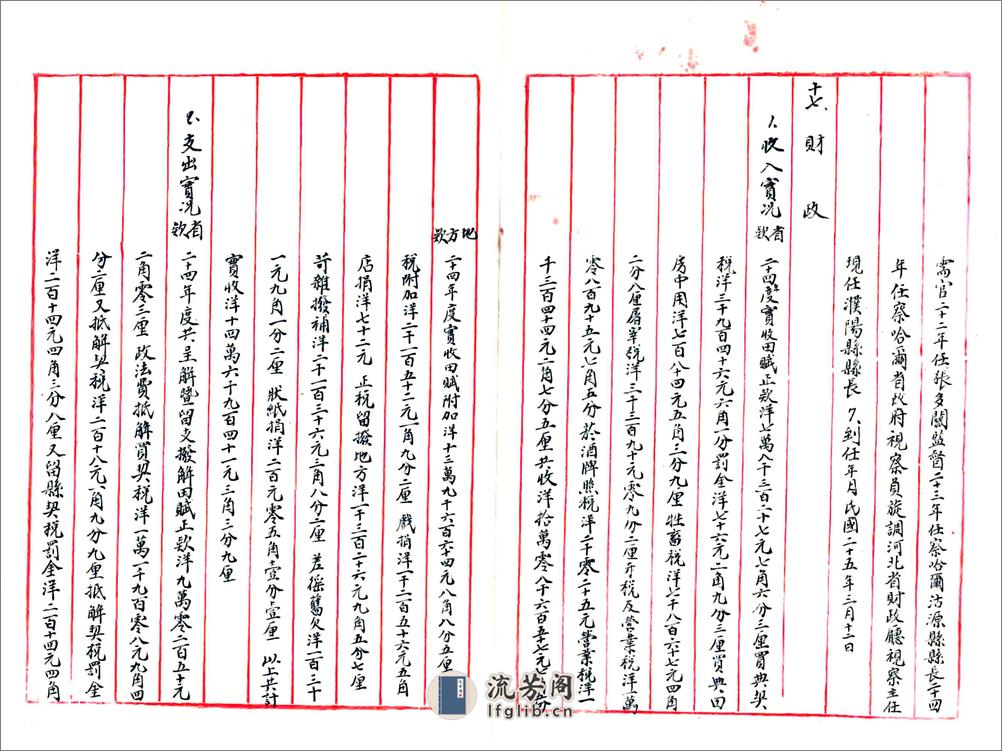 需官二十二年任張多關監督二十三年任察哈爾沽源縣縣長二十四
年任察哈爾省政府視察員旋調河北省財政廳視察主任
現任濮陽縣縣長 7、到任年月民國二十五年三月十二日
十七、財政
1、收入實況 省款 二十四年度實收田賦正款洋七萬八千三百二十七元七角六分三厘買典契
稅洋三千九百四十六元六角一分罰金洋七十六元二角九分三厘買典田
房中用洋七百八十四元五角三分九厘牲畜稅洋七千八百六十七元四角
二分八厘屠宰稅洋三千三百九十元零九分二厘牙稅及營業稅洋一萬
零八百九十五元六角五分菸酒牌照稅洋二千零二十五元營業稅洋一
千三百四十四元二角七分五厘共收洋拾萬零八千六百五十七元
地方款 二十四年度實收田賦附加洋十三萬九千六百六十四元八角八分五厘
稅附加洋二千一百五十二元一角九分二厘 戲捐洋一千二百五十六元五角
店捐洋七十二元 正稅留撥地方洋一千三百二十六元九角五分七厘
苛雜撥補洋二千一百三十六元三角八分二厘 差徭舊欠洋一百三十
一元九角一分二厘 狀紙捐洋二百元零五角壹分壹厘 以上共計
實收洋十四萬六千九百四十一元三角三分九厘
2、支出實況 省款 二十四年度共呈解暨留支撥解田賦正款洋九萬零二百五十元
二角零三厘 政法費抵解買契稅洋一萬一千九百零八元九角四
分二厘又抵解契稅洋二百十八元八角九分九厘抵解契稅罰金
洋二百十四元四角三分八厘又留縣契稅罰金洋二百十四元四角
流芳阁
lfglib.cn